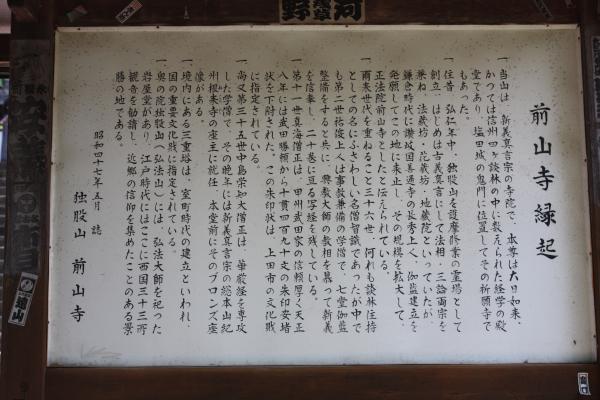 前山寺縁起
一、当山は、新義真言宗の寺院で、本尊は大日如来、
かつては信州四ヶ談林の中に数えられた経学の殿
堂であり、塩田城の鬼門に位置してその祈願寺で
もあった。
一、往昔、弘仁年中、独股山を護摩修業の霊場として
創立、はじめは古義真言にして法相・三論両宗を
兼ね、法蔵坊・花蔵坊・地蔵院といっていたが、
鎌倉時代に讃岐国善通寺の長秀上人、伽藍建立を
発願してこの地に来止し、その規模を拡大して、
正法院前山寺としたと伝えられている。
一、爾来世代を重ねること三十六世、何れも談林住持
としての名にふさわしい名僧智識であったが中で
も第二世祐俊上人は事教兼備の学僧で、七堂伽藍
整備をすると共に、興教大師の教相を慕って新義
を信奉し、二十巻に亘る写経を残している。
一、第十一世真海僧正は、甲州武田家の信頼厚く天正
八年には武田勝頼から十貫四百九十文の朱印安堵
状を下附された。この朱印状は、上田市の文化財
に指定されている。
一、尚又第三十五世中島崇和大僧正は、華厳経を専攻
した学僧で、その晩年には新義真言宗の総本山紀
州根来寺の座主に就任、本堂前にそのブロンズ座
像がある。
一、境内にある三重塔は、室町時代の建立といわれ、
国の重要文化財に指定されている。
一、奥の院独股山(弘法山)には、弘法大師を祀った
岩屋堂があり、江戸時代にはここに西国三十三所
観音を勧請し、近郷の信仰を集めたことのある景
勝の地である。
昭和四十七年五月 誌
独股山 前山寺
河
野
遠山